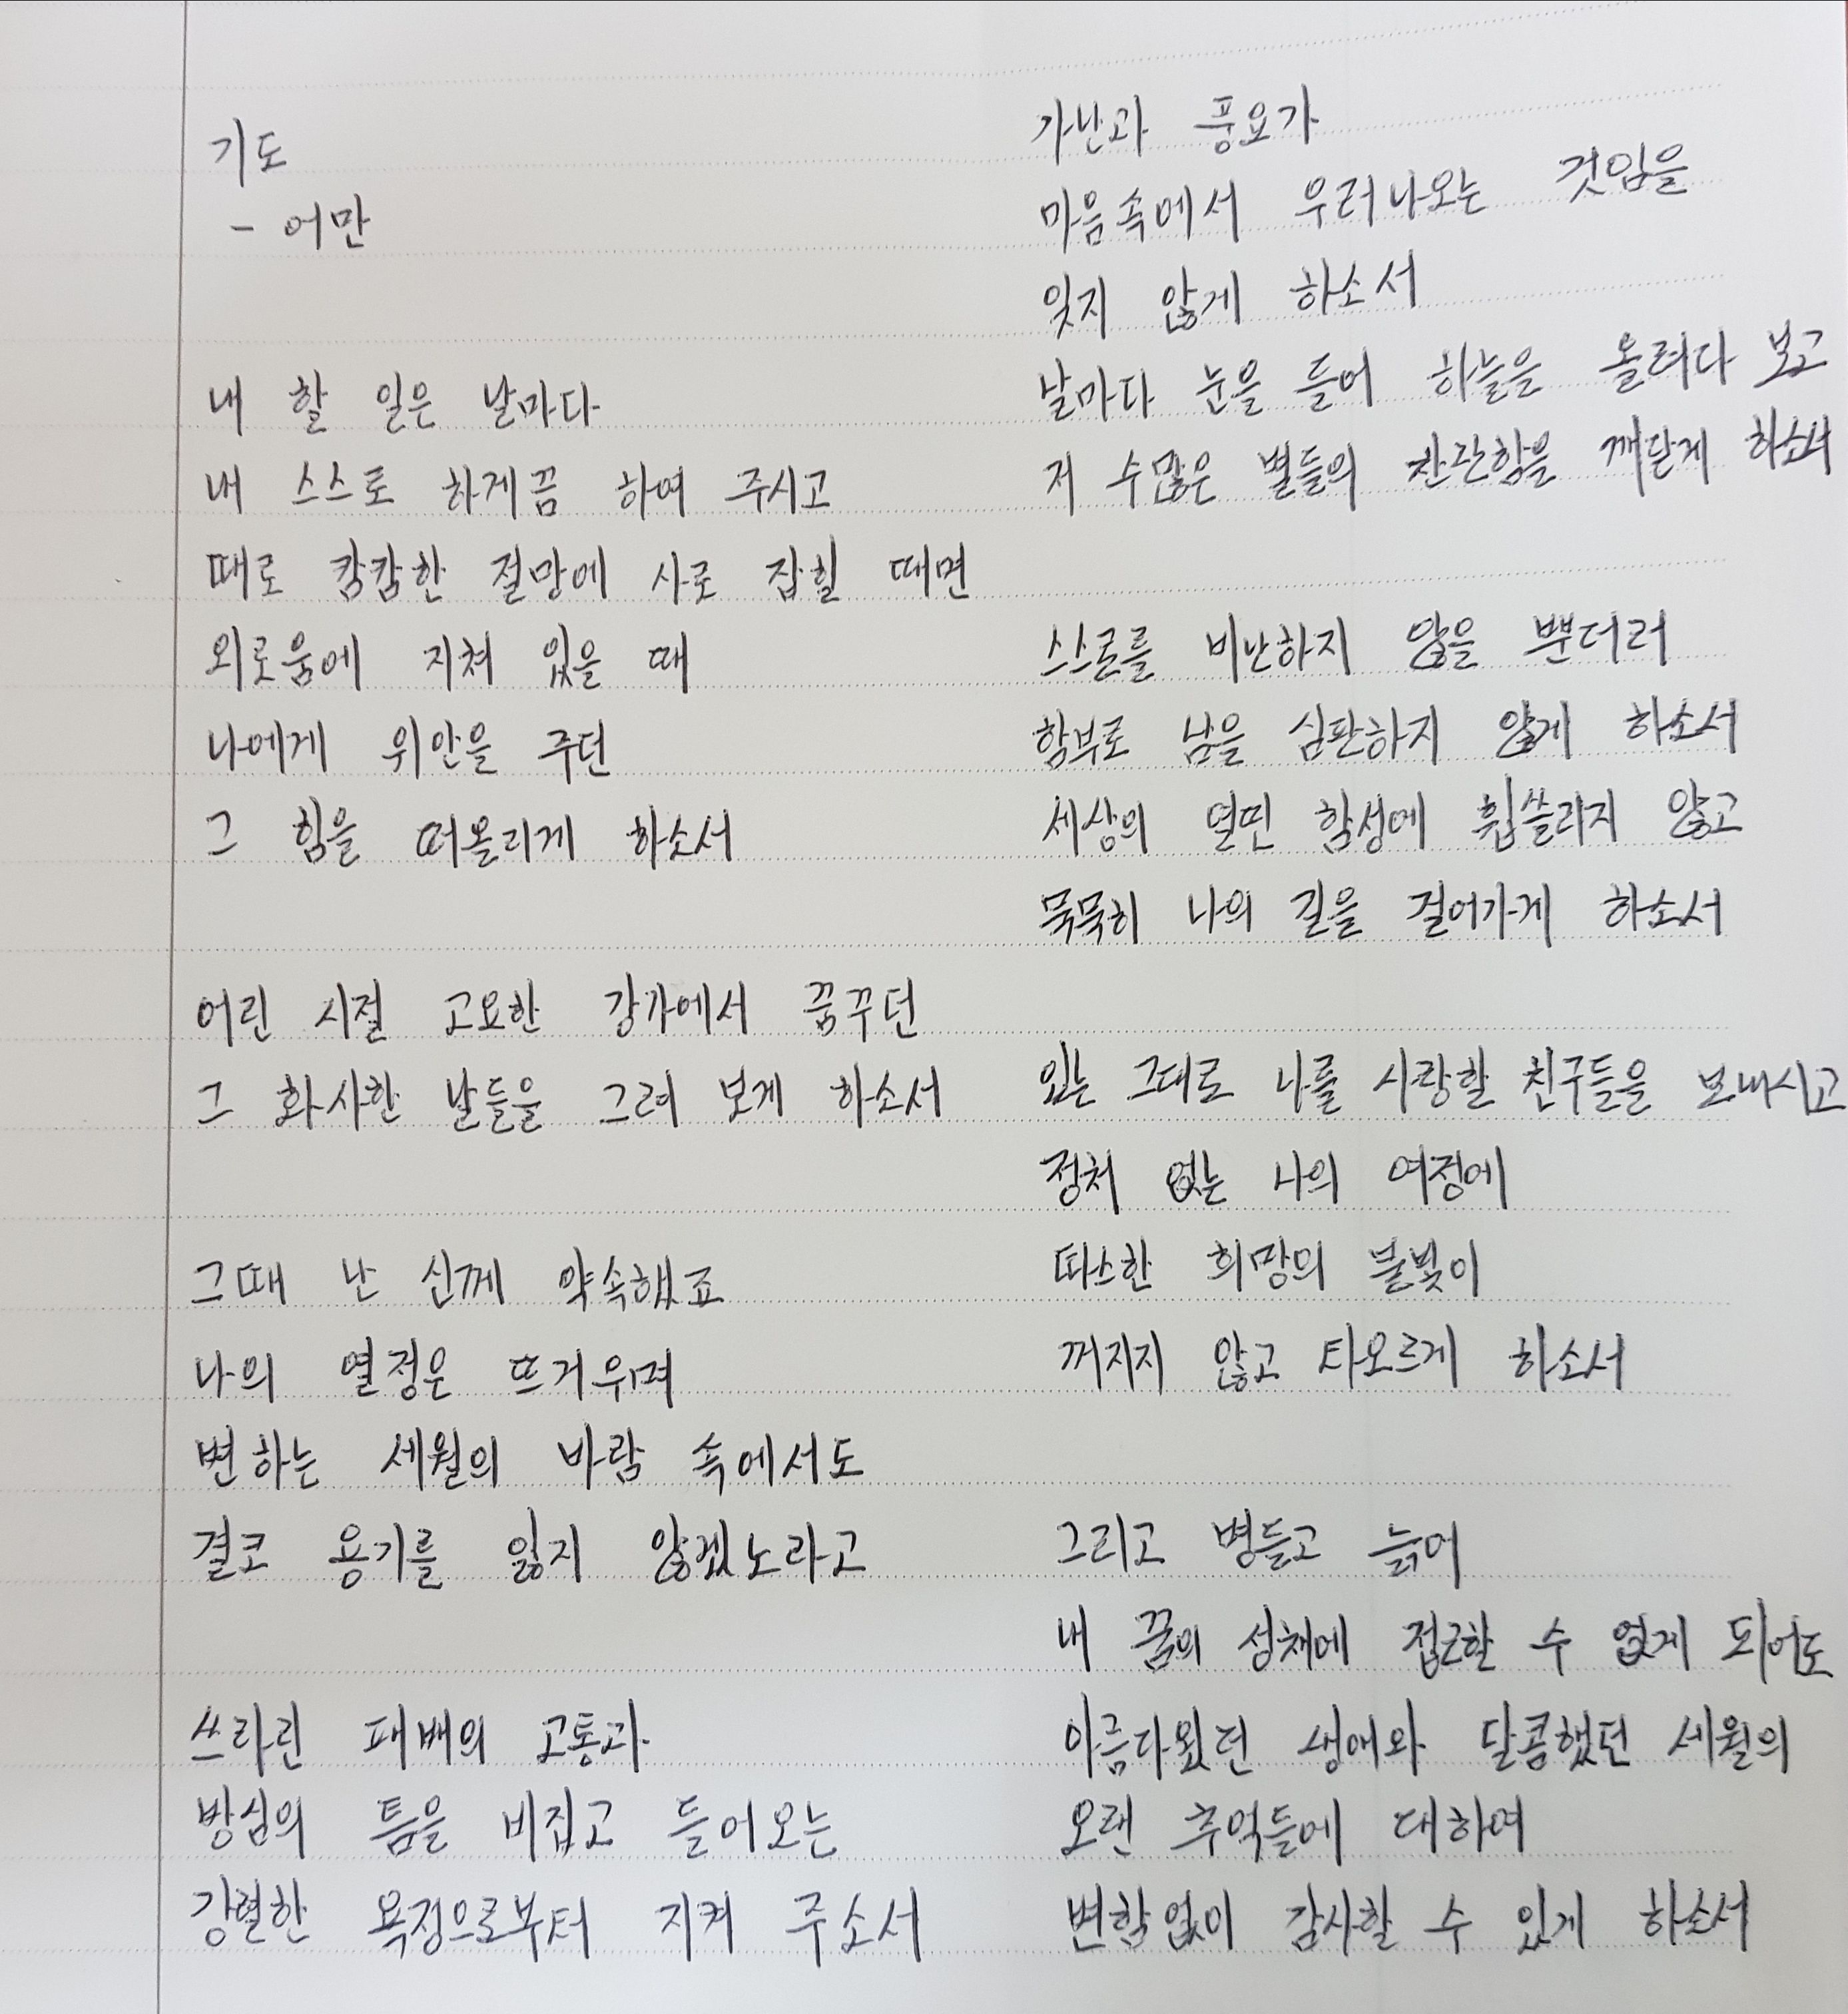 기도
- 어만
내 할 일은 날마다
내 스스로 하게끔 하여 주시고
때로 캄캄한 절망에 사로 잡힐 때면
외로움에 지쳐 있을 때
나에게 위안을 주던
그 힘을 떠올리게 하소서
어린 시절 고요한 강가에서 꿈꾸던
그 화사한 날들을 그려 보게 하소서
그때 난 신께 약속했죠
나의 열정은 뜨거우며
변하는 세월의 바람 속에서도
결코 용기를 잃지 않겠노라고
쓰라린 패배의 고통과
방심의 틈을 비집고 들어오는
강렬한 욕정으로부터 지켜 주소서
가난과 풍요가
마음속에서 우러나오는 것임을
잊지 않게 하소서
날마다 눈을 들어 하늘을 올려다 보고
저 수많은 별들의 찬란함을 깨닫게 하소서
스스로를 비난하지 않을 뿐더러
함부로 남을 심판하지 않게 하소서
세상의 열띤 함성에 휩쓸리지 않고
묵묵히 나의 길을 걸어가게 하소서
있는 그대로 나를 사랑할 친구들을 보내시고
정처 없는 나의 여정에
따스한 희망의 불빛이
꺼지지 않고 타오르게 하소서
그리고 병들고 늙어
내 꿈의 성채에 접근할 수 없게 되어도
아름다웠던 생애와 달콤했던 세월의
오랜 추억들에 대하여
변함없이 감사할 수 있게 하소서